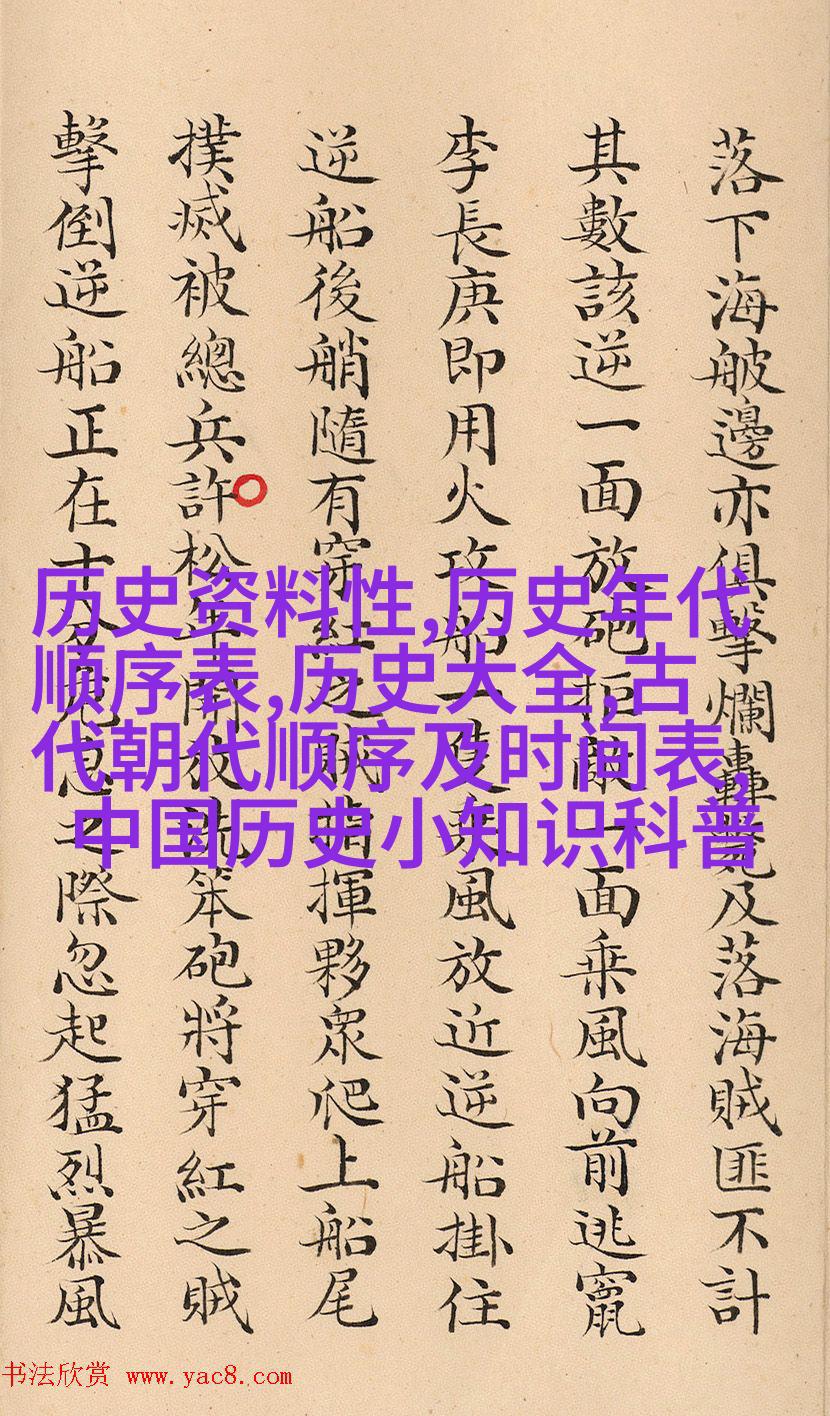 落下海舨邊亦俱擊爛轟斃及落海賊匪不計
其數該逆一面放砲拒敵一面乗風向前逃竄
李長庚即用火攻船一隻乘風放近逆船掛住
逆船後艄隨有穿紅之賊指揮夥眾爬上船尾
撲滅被總兵許松年開放洗笨砲將穿紅之賊
擊倒逆船正在十分危急之際忽起猛烈暴風
历史资料性,历史年代
顺序表,历史大全,古
代朝代顺序及时间表,
中国历史小知识科普
书法欣赏 www.yac8.com